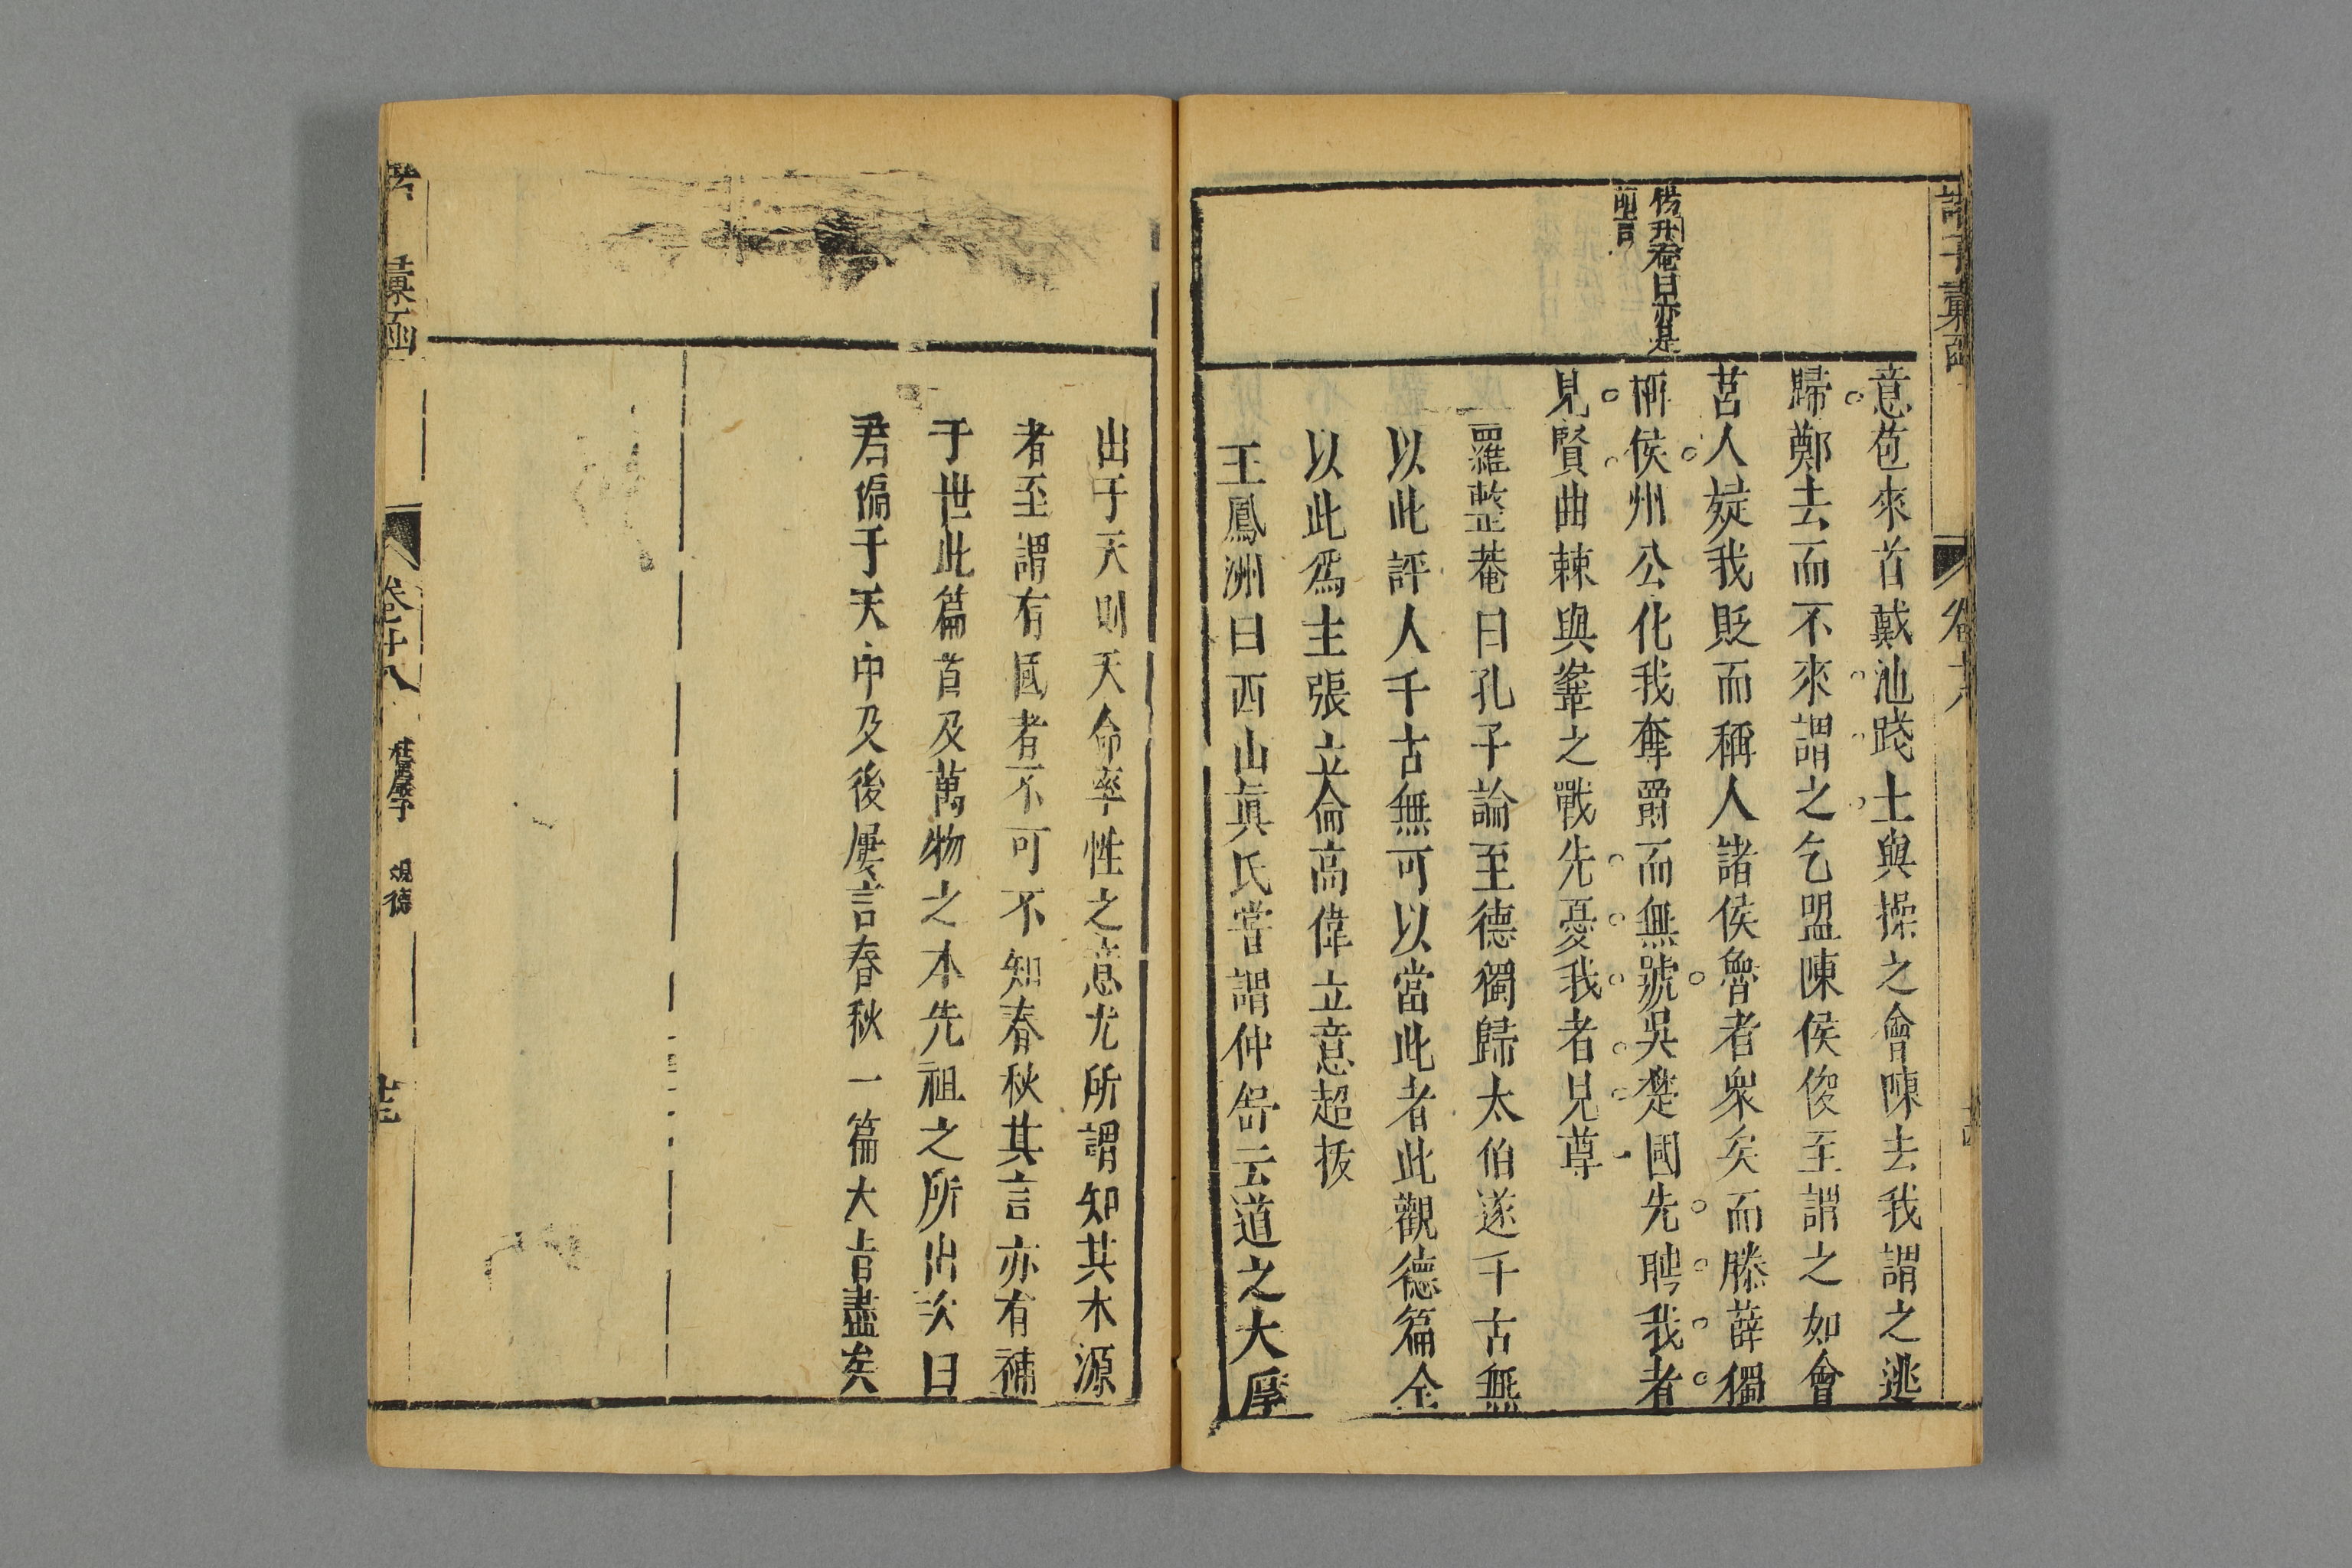 諸子彙函
卷十八
楊升菴曰亦是
前言
意苞來首戴池踐土與操之會陳去我謂之逃
歸鄭去而不來謂之乞盟陳侯後至謂之如會
莒人疑我貶而稱人諸侯魯者衆矣而滕薛獨
稱侯州公化我奪爵而無號吳楚國先聘我者
見賢曲棘與鞌之戰先憂我者見尊
羅整菴曰孔子論至德獨歸太伯遂千古無
以此評人千古無可以當此者此觀德篇全
以此爲主張立侖高偉立意超拔
王鳳洲曰西山眞氏嘗謂仲舒云道之大原
出于天則天命率性之意尤所謂知其本源
者至謂有國者不可不知春秋其言亦有補
于世此篇首及萬物之本先祖之所出次曰
君偏于天中及後屢言春秋一篇大旨盡矣
彙函
卷十八
桂巖子
觀德